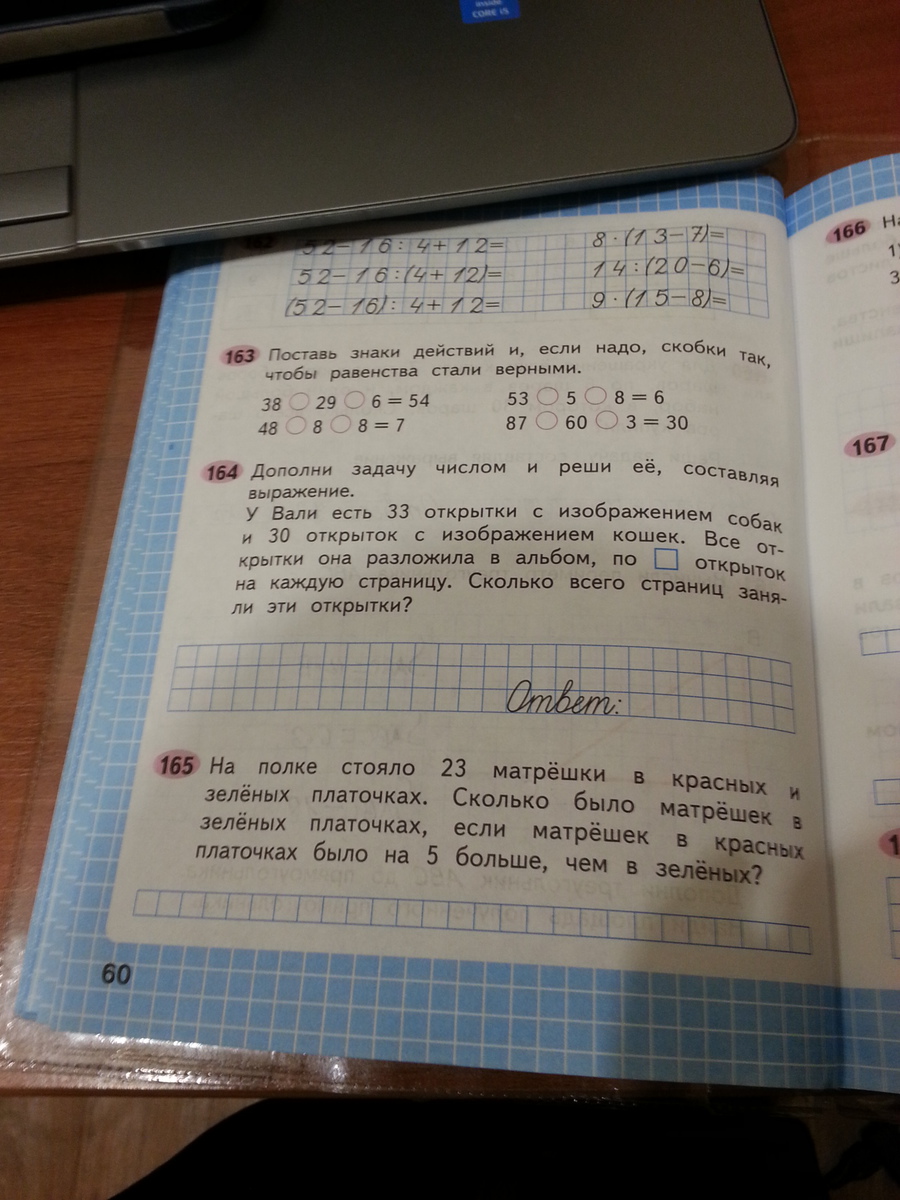 inside
CORE i5
162 52-16:4+12= 8·(13-7)=
52-16:(4+12)= 14:(20-6)=
(52-16):4+12= 9·(15-8)=
163 Поставь знаки действий и, если надо, скобки так,
чтобы равенства стали верными.
38 ○ 29 ○ 6 = 54 53 ○ 5 ○ 8 = 6
48 ○ 8 ○ 8 = 7 87 ○ 60 ○ 3 = 30
164 Дополни задачу числом и реши её, составляя
выражение.
У Вали есть 33 открытки с изображением собак
и 30 открыток с изображением кошек. Все от-
крытки она разложила в альбом, по □ открыток
на каждую страницу. Сколько всего страниц заня-
ли эти открытки?
Ответ:
165 На полке стояло 23 матрёшки в красных и
зелёных платочках. Сколько было матрёшек в
зелёных платочках, если матрёшек в красных
платочках было на 5 больше, чем в зелёных?
60
166 На
1)
3
167
1